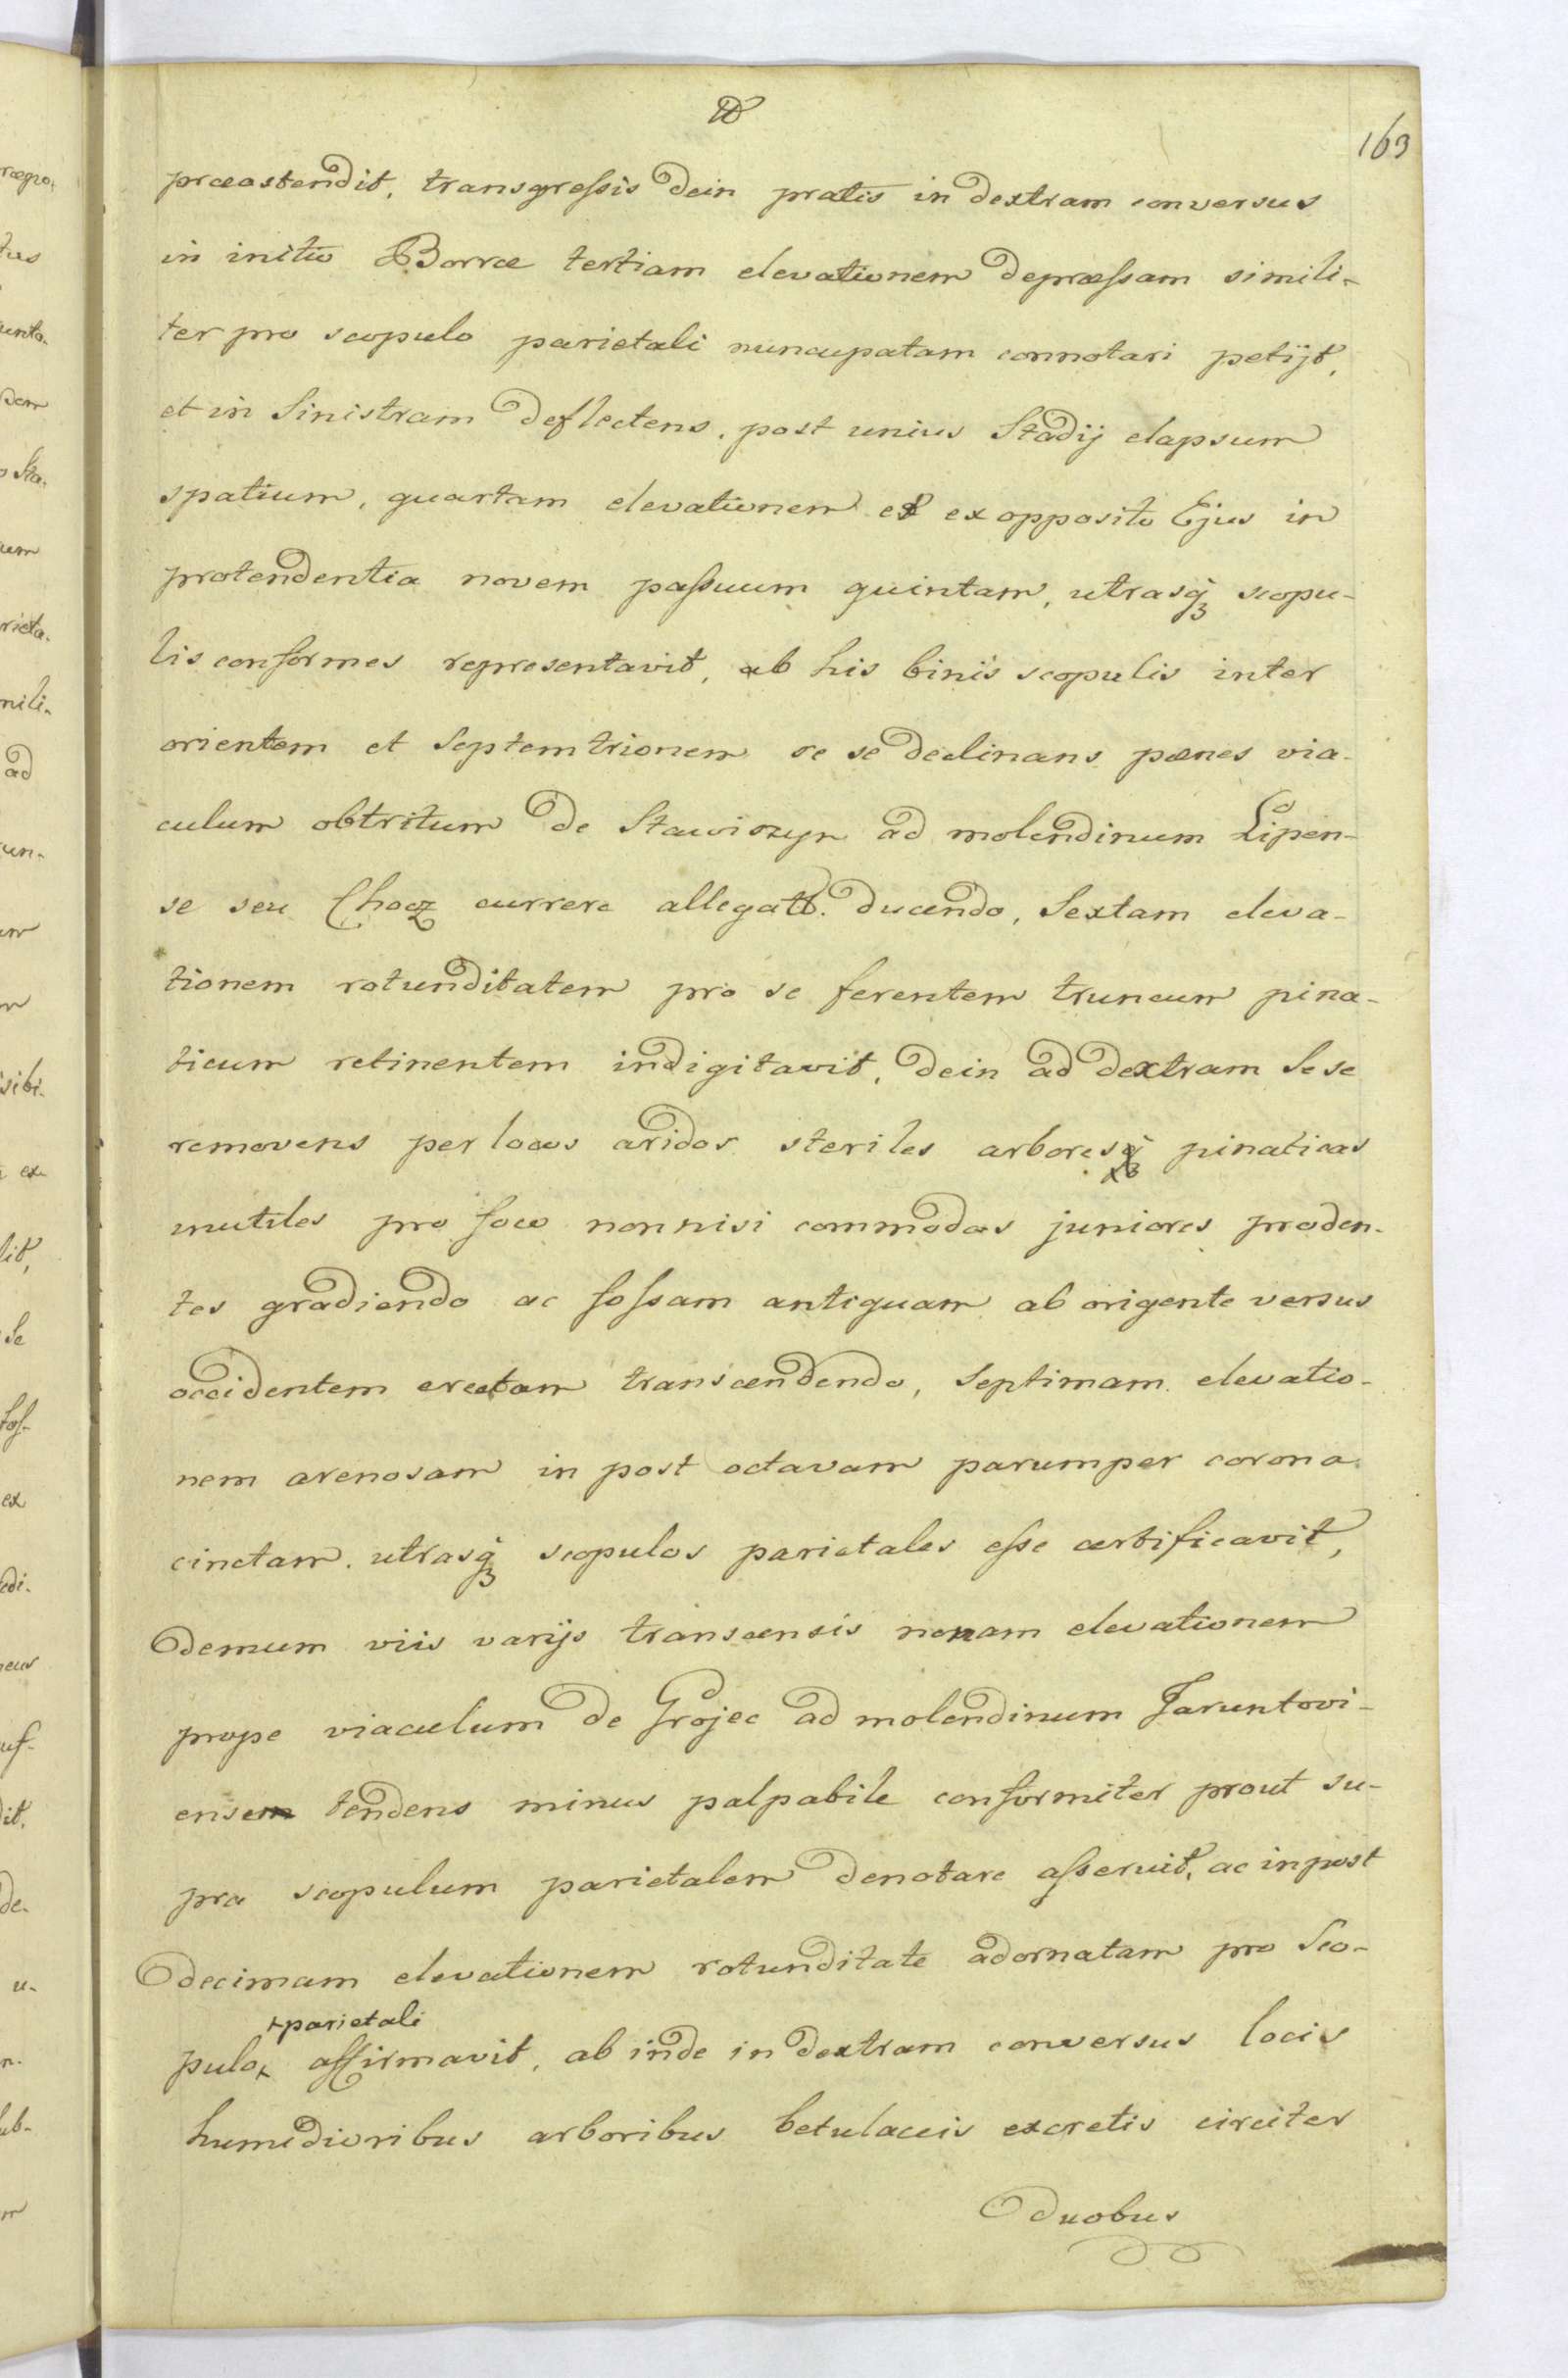 163
præostendit, transgressis dein pratis in dextram conversus
in initio Borræ tertiam elevationem depræssam simili-
ter pro scopulo parietali nuncupatam connotari petijt,
et in Sinistram deflectens, post unius Stadij elapsum
spatium, quartam elevationem et ex opposito Ejus in
protendentia novem passuum quintam, utrasq3 scopu-
lis conformes representavit, ab his binis scopulis inter
orientem et Septemtrionem se se declinans pænes via-
culum obtritum de Stawiszyn ad molendinum Lipen-
se seu Chocz currere allegatt. ducendo, Sextam eleva-
tionem rotunditatem pro se ferentem truncum pina-
ticum retinentem indigitavit, dein ad dextram Sese
removens per locos aridos steriles arboresq3 pinaticas
inutiles pro foco nonnisi commodas juniores proden-
tes gradiendo ac fossam antiquam ab origente versus
occidentem erectam transcendendo, Septimam elevatio-
nem arenosam in post octavam parumper corona
cinctam utrasq3 scopulos parietales esse certificavit,
demum viis varijs transcensis nonam elevationem
prope viaculum de Grojec ad molendinum Taruntovi-
ensem tendens minus palpabile conformiter prout su-
pra scopulum parietalem denotare asseruit, ac inpost
decimam elevationem rotunditate adornatam pro Sco-
+parietali
pulo+ affirmavit, ab inde in dextram conversus locis
humidioribus arboribus betulaceis excretis circiter
duobus